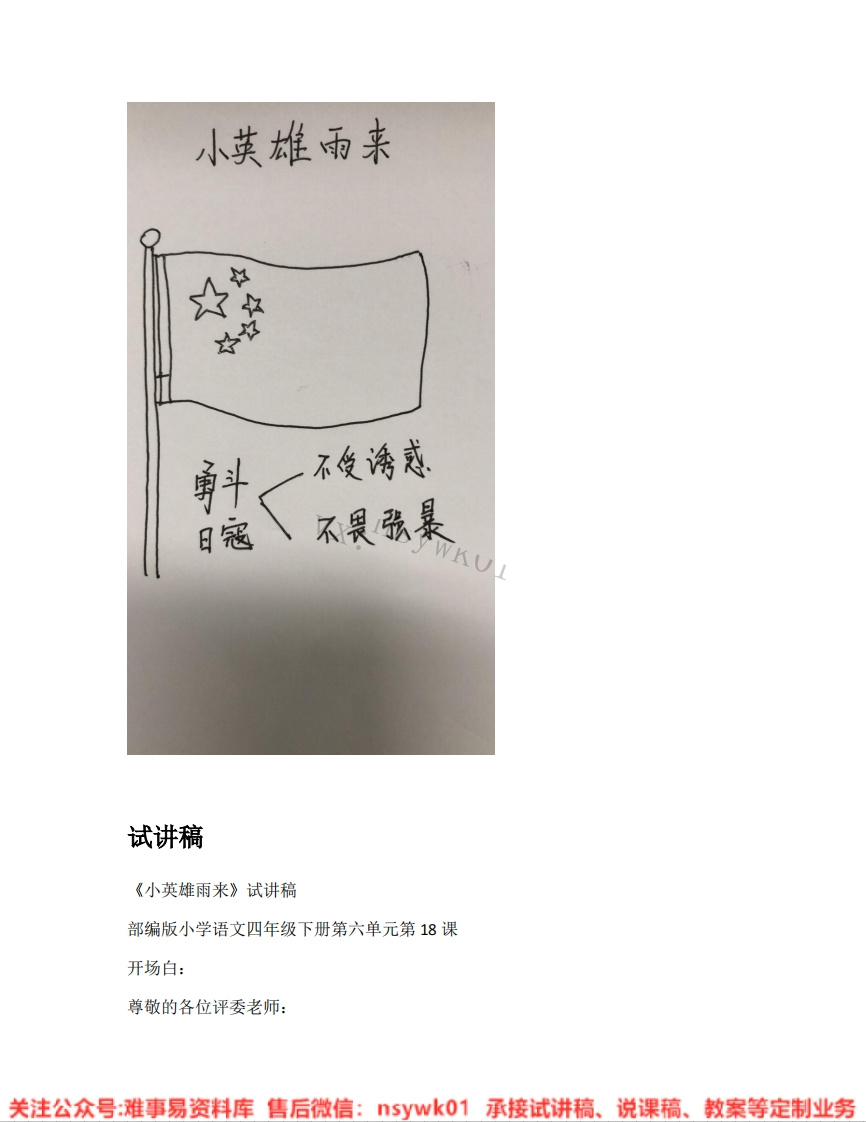 小英雄雨来
勇斗
日寇
不受诱惑
不畏强暴
试讲稿
《小英雄雨来》试讲稿
部编版小学语文四年级下册第六单元第 18 课
开场白：
尊敬的各位评委老师：
关注公众号:难事易资料库 售后微信：nsywk01 承接试讲稿、说课稿、教案等定制业务